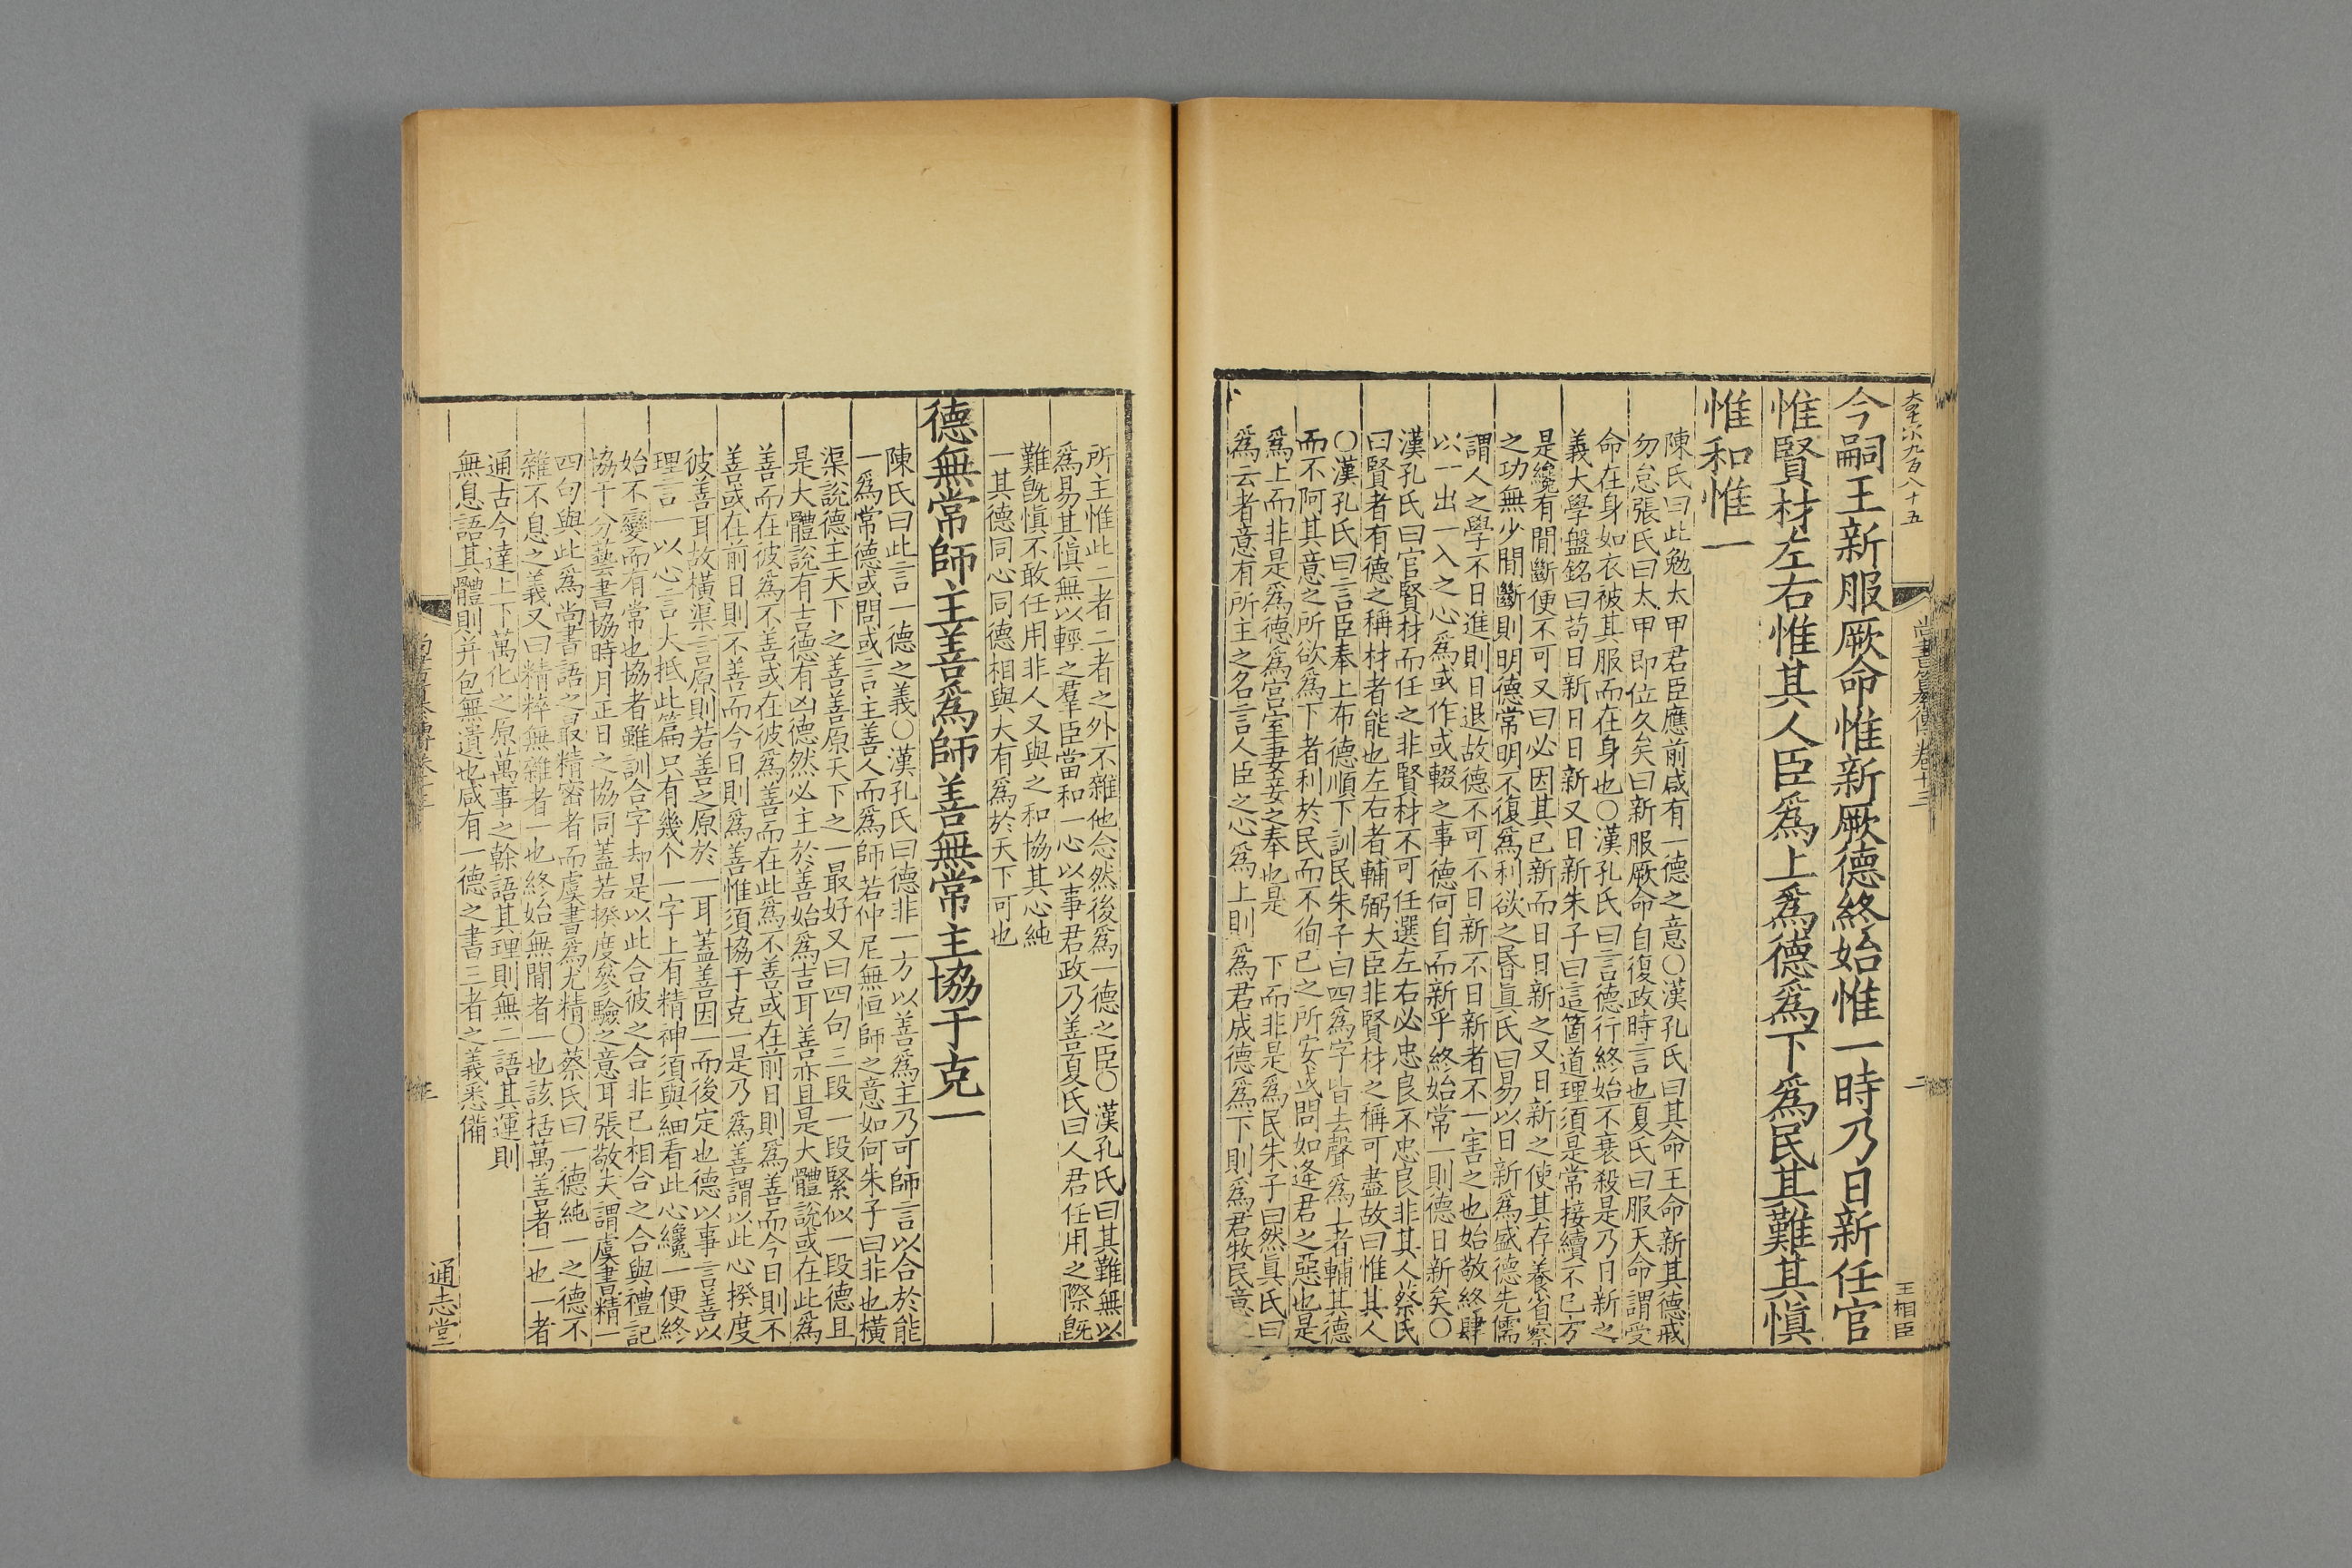 尚書纂傳卷十三
二
王相臣
今嗣王新服厥命惟新厥德終始惟一時乃日新任官
惟賢材左右惟其人臣爲上爲德爲下爲民其難其愼
惟和惟一
陳氏曰此勉太甲君臣應前咸有一德之意〇漢孔氏曰其命王命新其德戒
勿怠張氏曰太甲即位久矣曰新服厥命自復政時言也夏氏曰服天命謂受
命在身如衣被其服而在身也〇漢孔氏曰言德行終始不衰殺是乃日新之
義大學盤銘曰苟日新日日新又日新朱子曰這箇道理須是常接續不已方
是纔有間斷便不可又曰必因其已新而日日新之又日新之使其存養省察
之功無少間斷則明德常明不復爲利欲之昏眞氏曰易以日新爲盛德先儒
謂人之學不日進則日退故德不可不日新不日新者不一害之也始敬終肆
以一出一入之心爲或作或輟之事德何自而新乎終始常一則德日新矣〇
漢孔氏曰官賢材而任之非賢材不可任選左右必忠良不忠良非其人蔡氏
曰賢者有德之稱材者能也左右者輔弼大臣非賢材之稱可盡故曰惟其人
〇漢孔氏曰言臣奉上布德順下訓民朱子曰四爲字皆去聲爲上者輔其德
而不阿其意之所欲爲下者利於民而不徇己之所安或問如逢君之惡也是
爲上而非是爲德爲宮室妻妾之奉也是 下而非是爲民朱子曰然眞氏曰
爲云者意有所主之名言人臣之心爲上則爲君成德爲下則爲君牧民意之
所主惟此二者二者之外不雜他念然後爲一德之臣〇漢孔氏曰其難無以
爲易其愼無以輕之羣臣當和一心以事君政乃善夏氏曰人君任用之際旣
難旣愼不敢任用非人又與之和協其心純
一其德同心同德相與大有爲於天下可也
德無常師主善爲師善無常主協于克一
陳氏曰此言一德之義〇漢孔氏曰德非一方以善爲主乃可師言以合於能
一爲常德或問或言主善人而爲師若仲尼無恒師之意如何朱子曰非也橫
渠說德主天下之善善原天下之一最好又曰四句三段一段緊似一段德且
是大體說有吉德有凶德然必主於善始爲吉耳善亦且是大體說或在此爲
善而在彼爲不善或在彼爲善而在此爲不善或在前日則爲善而今日則不
善或在前日則不善而今日則爲善惟須協于克一是乃爲善謂以此心揆度
彼善耳故橫渠言原則若善之原於一耳蓋善因一而後定也德以事言善以
理言一以心言大抵此篇只有幾个一字上有精神須與細看此心纔一便終
始不變而有常也協者雖訓合字却是以此合彼之合非已相合之合與禮記
協于分藝書協時月正日之協同蓋若揆度參驗之意耳張敬夫謂虞書精一
四句與此爲尚書語之最精密者而虞書爲尤精〇蔡氏曰一德純一之德不
雜不息之義又曰精粹無雜者一也終始無間者一也該括萬善者一也一者
通古今達上下萬化之原萬事之幹語其理則無二語其運則
無息語其體則并包無遺也咸有一德之書三者之義悉備
通志堂